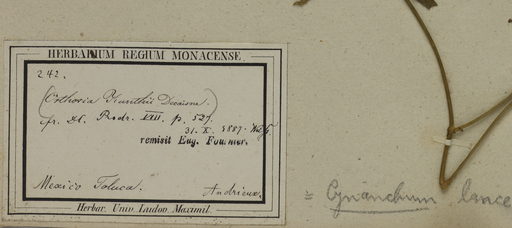 HERBARIUM REGIUM MONACENSE.
242.
(Orthosia Kunthii Decaisne.)
fr. DC. Prodr. VIII. p. 527.
31. X. 1887.
remisit Eug. Fournier.
Mexico Toluca. Andrieux.
Herbar. Univ. Ludov. Maximil.
= Cynanchum lance